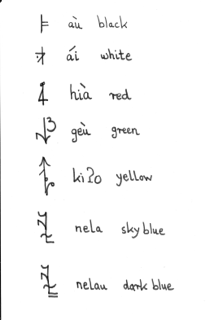 aù black
áí white
hià red
gèù green
kiʔo yellow
nela sky blue
nelau dark blue